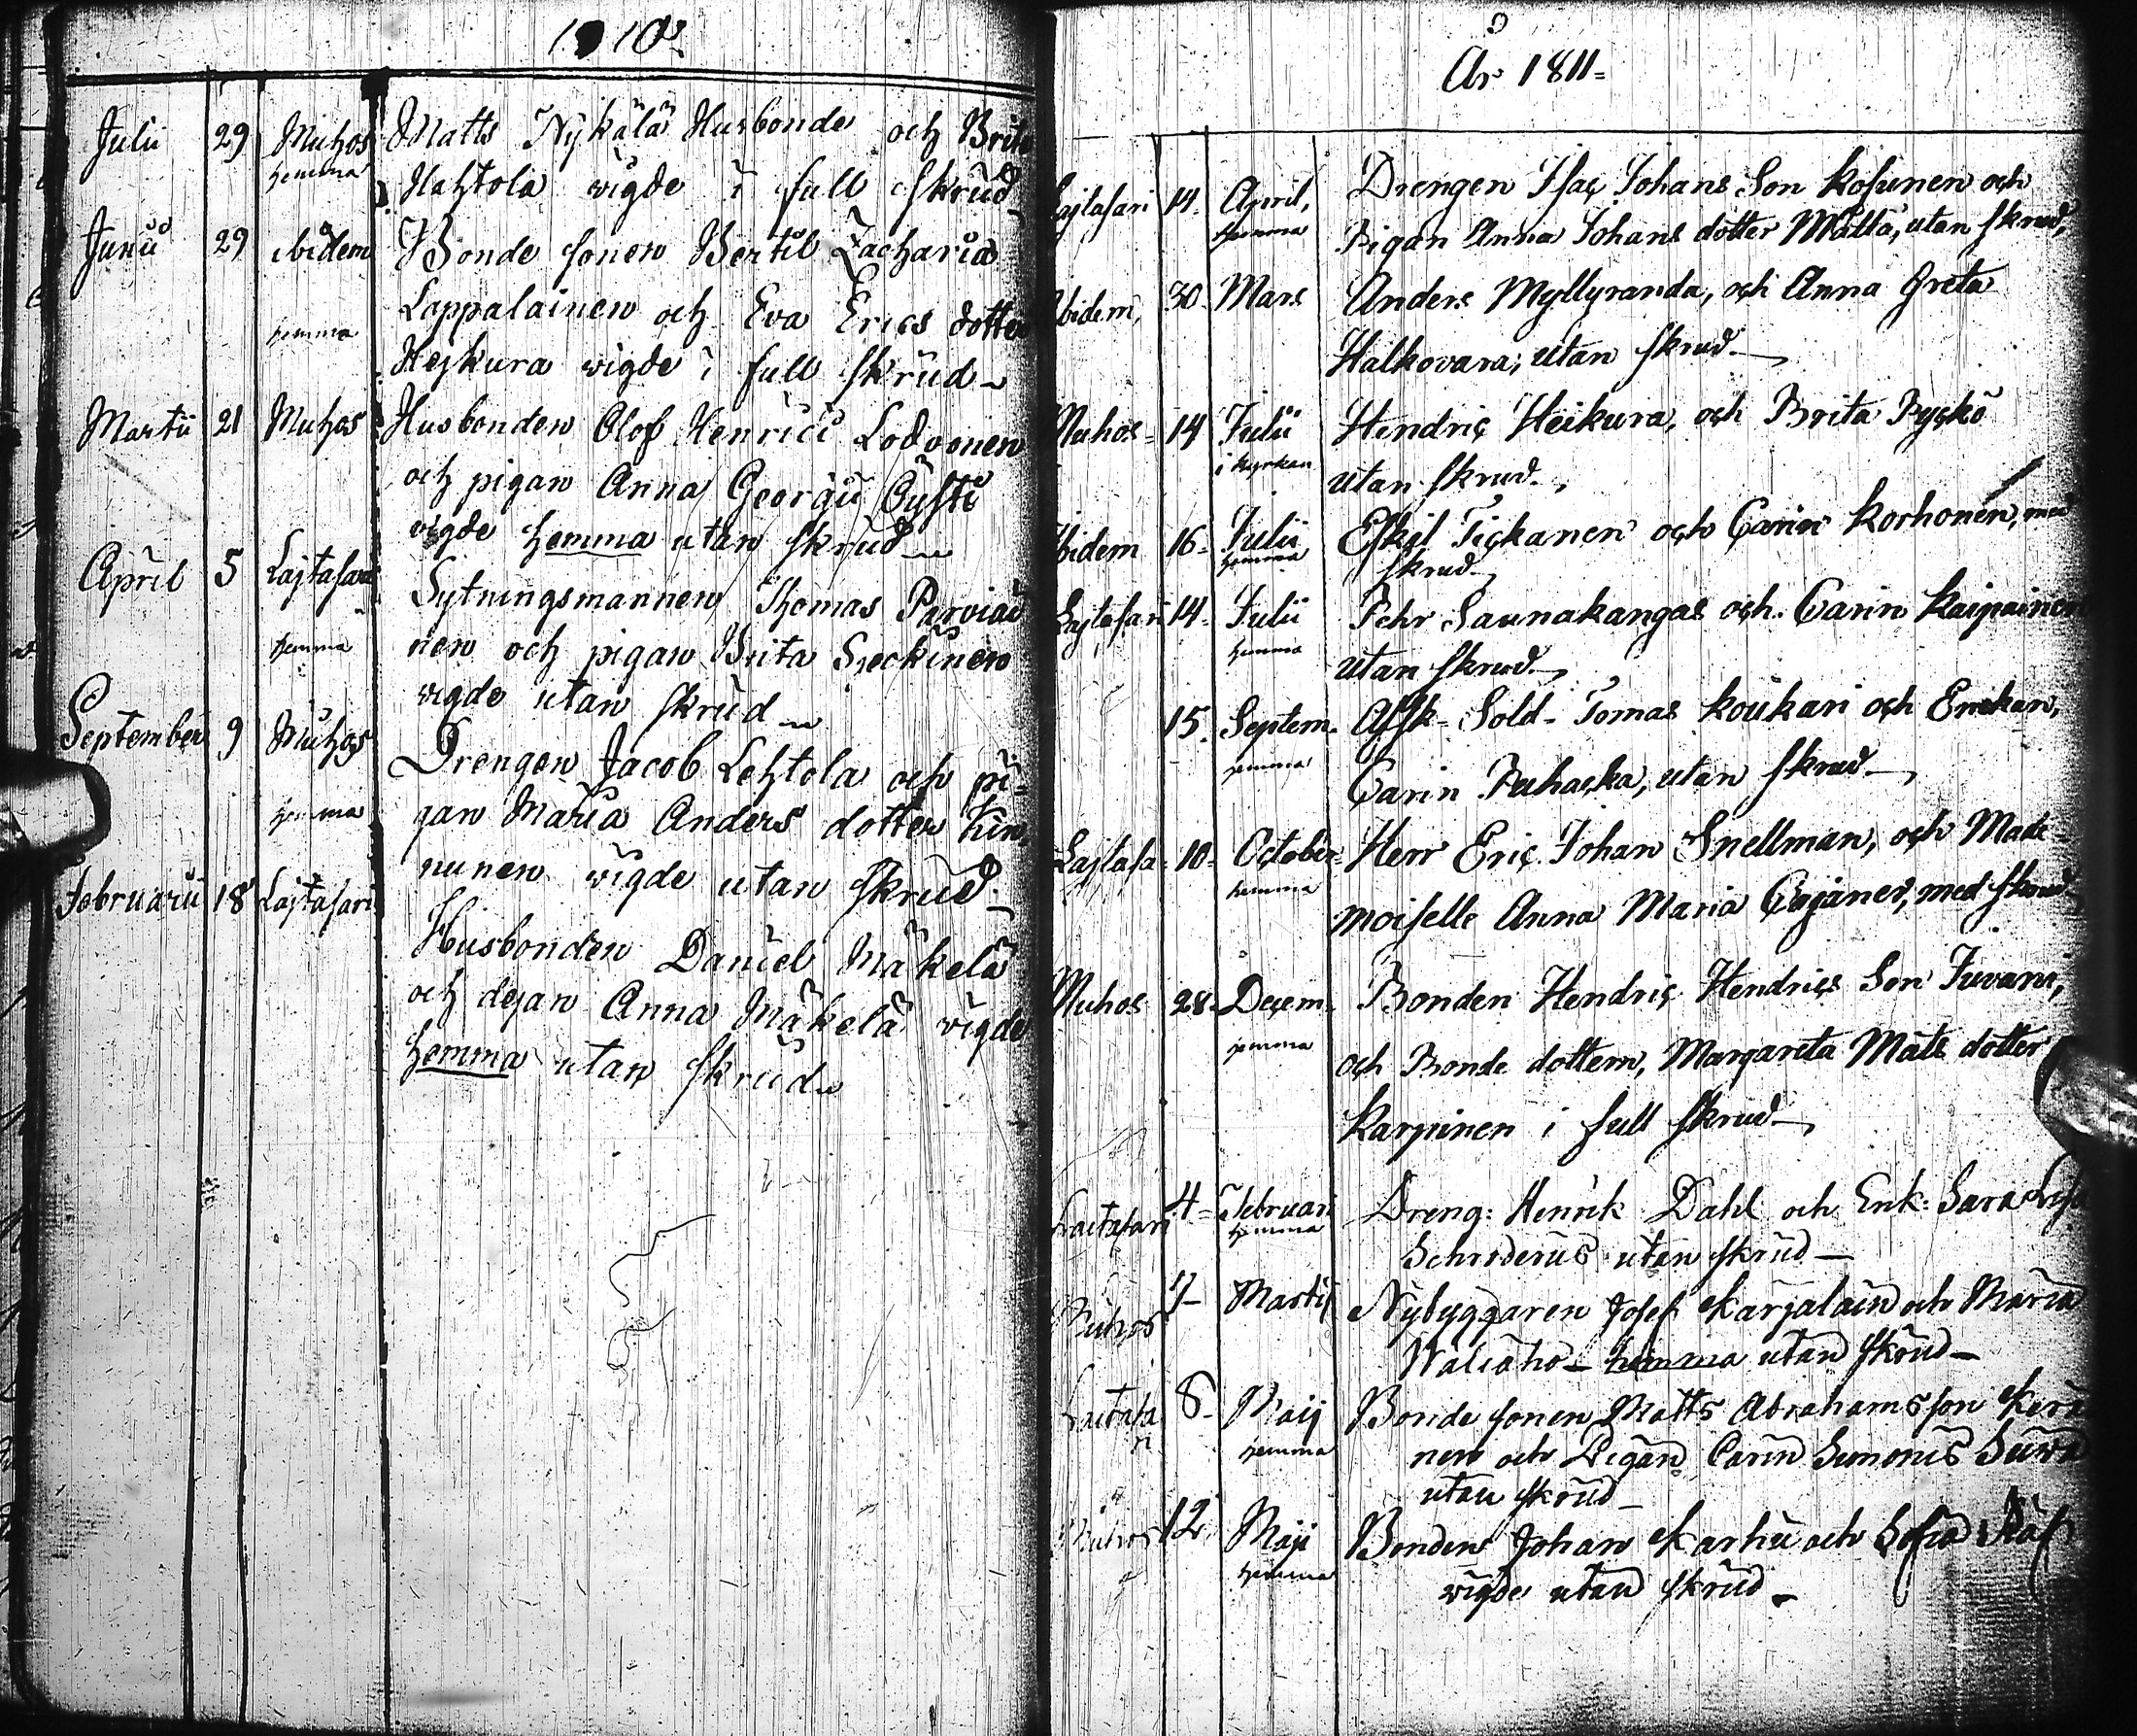 1810
Julii 29 Muhos Matts Nykälä Husbonde och Brita
hemma Hahtola wigde i full skrud
Junii 29 ibidem Bonde sonen Bertil Zacharia
Lappalainen och Eva Erics dotter
hemma
Hejkura wigde i full skrud
Martii 21 Muhos Husbonden Olof Henrici Lodvonen
och pigan Anna Georgii
wigde hemma utan skrud
April 5 Lajtasari Sytningsmannen Thomas Parviai
hemma nen och pigan Brita
wigde utan skrud
September 9 Muhos Drengen Jacob Lehtola och pi-
hemma gan Maria Anders dotter Kin
nunen wigde utan skrud
Februarii 18 Lajtasari Husbonden Daniel Mäkelä
och dejan Anna Mäkelä wigde
hemma utan skrud
År 1811
Lajtasari 14. April, Drengen Isac Johans Son Kosunen och
hemma Pigan Anna Johans dotter Mätta, utan skrud,
Ibidem, 30. Mars Anders Myllyranda, och Anna Greta
Halkovara, utan skrud
Muhos 14 Julii Hendric Heikura, och Brita Pyckö
i kyrkan utan skrud
Ibidem 16 Julii Eskil Tickanen och Carin Korhonen, med
hemma skrud
Lajtasari 14 Julii Pehr Saunakangas och Carin Karpainen
hemma utan skrud
15. Septem. Afsk. Sold. Tomas Koukari och Enckan,
hemma Carin Puhacka, utan skrud
Lajtasa 10 October Herr Eric Johan Snellman, och Made-
hemma moiselle Anna Maria Cajaner, med skrud
Muhos 28 Decem. Bonden Hendric Hendrics Son Juvani,
hemma och Bonde dottern, Margareta Mats dotter
Karpinen i full skrud
Laitasari 4 Februari Dreng: Henrik Dahl och Enk: Sara
hemma Schroderus utan skrud
Muhos 7 Martij Nybyggaren Josef Karjalain och Maria
Waliaho hemma utan skrud
Laitasa 8 Maij Bonde sonen Matts Abrahamsson Kerä
ri hemma nen och Pigan Carin Simonis
utan skrud
Muhos 12 Maji Bonden Johan Karhu och Sofia
hemma wigde utan skrud